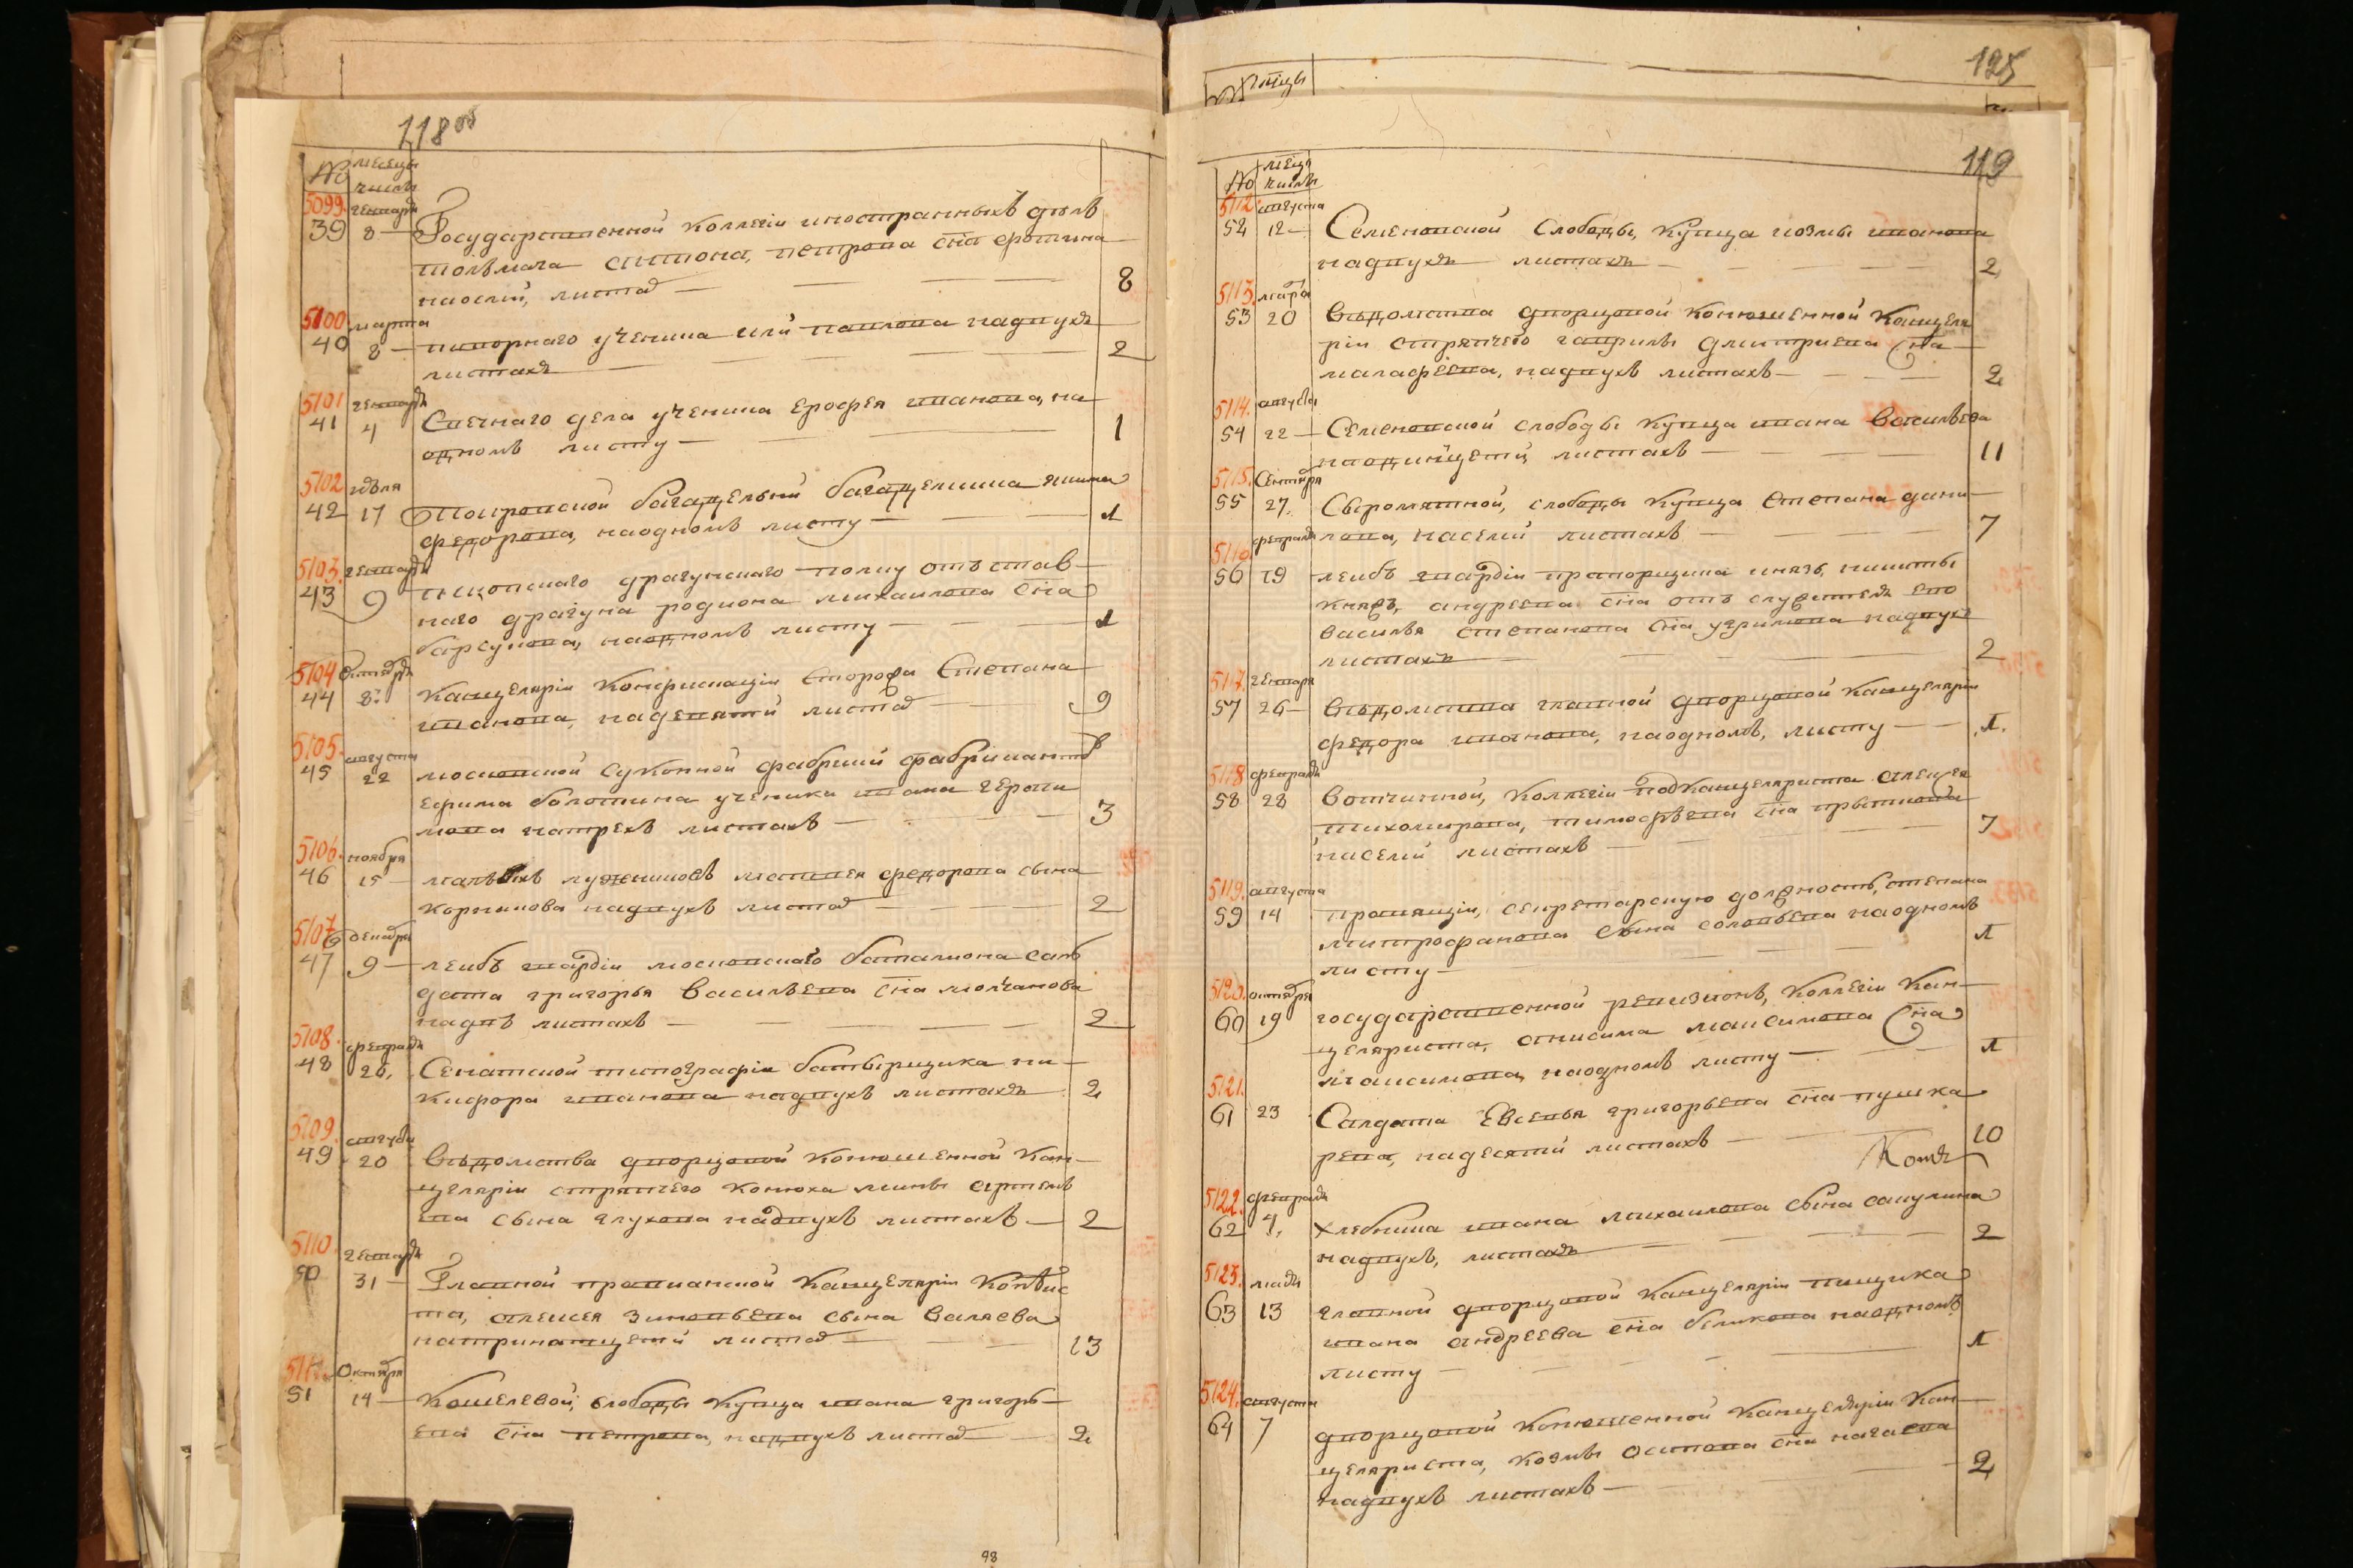 118 об
№ месецы
числы
5099. генваря
39 8 Государственной коллегіи иностранныхъ дѣлъ
толъмача антона, петрова сна
наосми, листах 8
5100 марта
40 8 ученика или павлова надвухъ
листахъ 2
5101 генваря
41 4 Свечнаго дела ученика ерофея иванова, на
одномъ листу 1
5102 июля
42 17 покровской багадельни багаделника якима
федорова, наодномъ листу 1
5103. генваря
43 9 псковскаго драгунскаго полку отъ став
наго драгуна родиона михаилова сна
барсукова, наодномъ листу 1
5104 октября
44 8. канцеляріи конфискаціи сторожа степана
иванова, надевяти листах 9
5105. августа
45 22 московской суконной фабрики фабриканта
ефима болотина ученика ивана гераси
мова натрехъ листахъ 3
5106. ноября
46 15 матвея федорова сына
корнилова надвухъ листах 2
5107 декабря
47 9 леибъ гвардіи московскаго баталиона сал
дата григорья васильева сна молчанова
надвъ листахъ 2
5108. февраля
48 26. Сенатской типографіи батырщика ни
кифора иванова надвухъ листахъ 2
5109. августа
49 20 вѣдомства дворцовой конюшенной кан
целяріи стряпчего конюха мины артемь
ева сына глухова надвухъ листахъ 2
5110. генваря
50 31 Главной провианской канцеляріи копѣис
та, алексея зиновьева сына валяева
натринатцети листах 13
5111. Октября
51 14 Кошелевой, слободы купца ивана григорь
ева сна петрова, надвухъ листах 2
98
месецы
125
119
№ месецы
числы
5112. августа
52 12 Семеновской слободы, купца козмы иванова
надвухъ листахъ 2
5113. марта
53 20 вѣдомства дворцовой конюшенной канцеля
ріи стряпчего гаврилы дмитриева сна
малафѣева, надвухъ листахъ 2
5114. августа
54 22 Семеновской слободы купца ивана васильева
наодинатцети, листахъ 11
5115. Сентября
55 27. Сыромятной, слободы купца степана дани
лова, насеми листахъ 7
5116. февраля
56 19 леибъ гвардіи прапорщика князь, никиты
князь, андреева сна отъ служителя его
василья степанова сна надвухъ
листахъ 2
5117. генваря
57 26 вѣдомства главной дворцовой канцеляріи
федора иванова, наодномъ, листу 1.
5118 февраля
58 28 вотчинной, коллегіи подканцеляриста алексея
тихомирова, тимофѣева сна
насеми листахъ 7
5119. августа
59 14 секретарскую должность, степана
митрофанова сына соловьева наодномъ
листу 1
5120. октября
60 19 государственной ревизионъ, коллегіи кан
целяриста, анисима максимова сна
максимова, наодномъ листу 1
5121.
61 23 Салдата Евсевья григорьева сна пушка
рева, надесяти листахъ 10
5122. февраля
62 4. хлебника ивана михаилова сына сакулина
надвухъ, листахъ 2
5123. маия
63 13 главной дворцовой канцеляріи пищика
ивана андреева сна беликова наодномъ
листу 1
5124. августа
64 7 дворцовой конюшенной канцеляріи кан
целяриста, козмы осипова сна нагаева
надвухъ листахъ 2